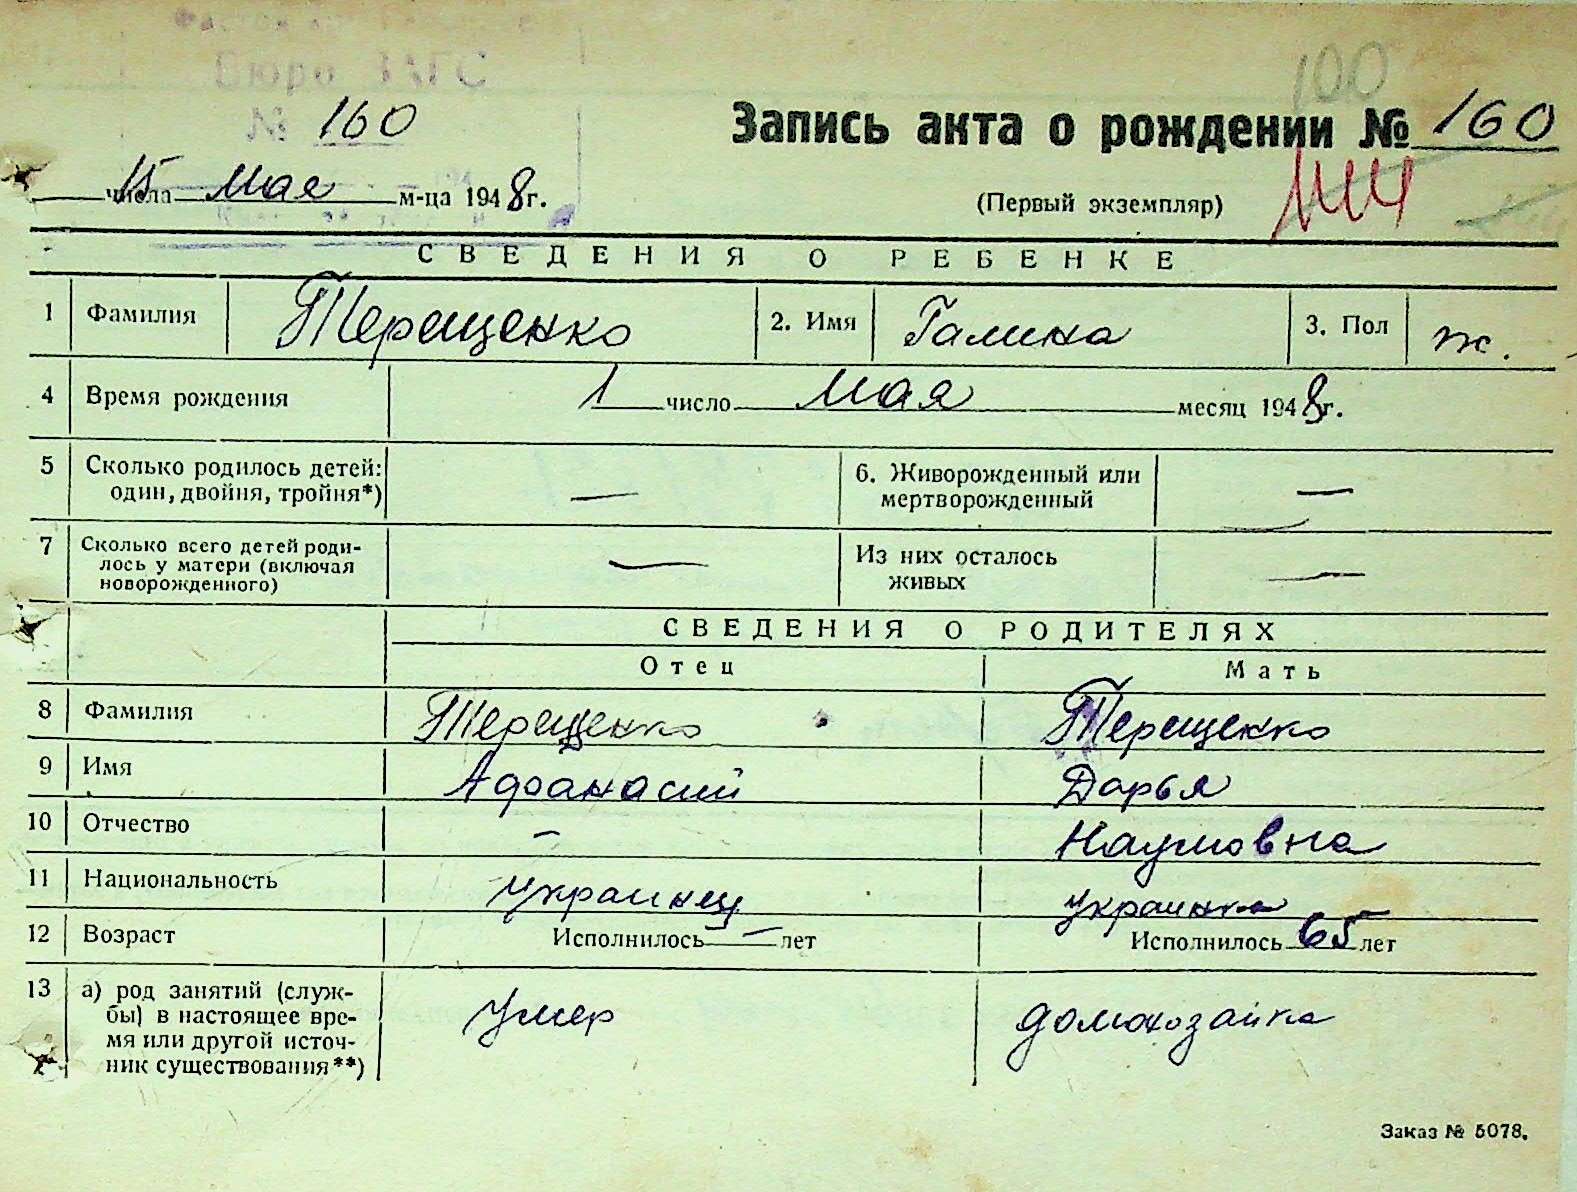 Бюро ЗАГС
100
№ 160
Запись акта о рождении № 160
15 числа мая м-ца 1948 г.
(Первый экземпляр)
СВЕДЕНИЯ О РЕБЕНКЕ
1 Фамилия Терещенко 2. Имя Галина 3. Пол ж.
4 Время рождения 1 число мая месяц 1948 г.
5 Сколько родилось детей: — 6. Живорожденный или —
один, двойня, тройня*) мертворожденный
7 Сколько всего детей роди- — Из них осталось —
лось у матери (включая живых
новорожденного)
СВЕДЕНИЯ О РОДИТЕЛЯХ
Отец Мать
8 Фамилия Терещенко Терещенко
9 Имя Афанасий Дарья
10 Отчество — Наумовна
11 Национальность украинец украинка
12 Возраст Исполнилось — лет Исполнилось 65 лет
13 а) род занятий (служ- умер домохозайка
бы) в настоящее вре-
мя или другой источ-
ник существования**)
Заказ № 5078.